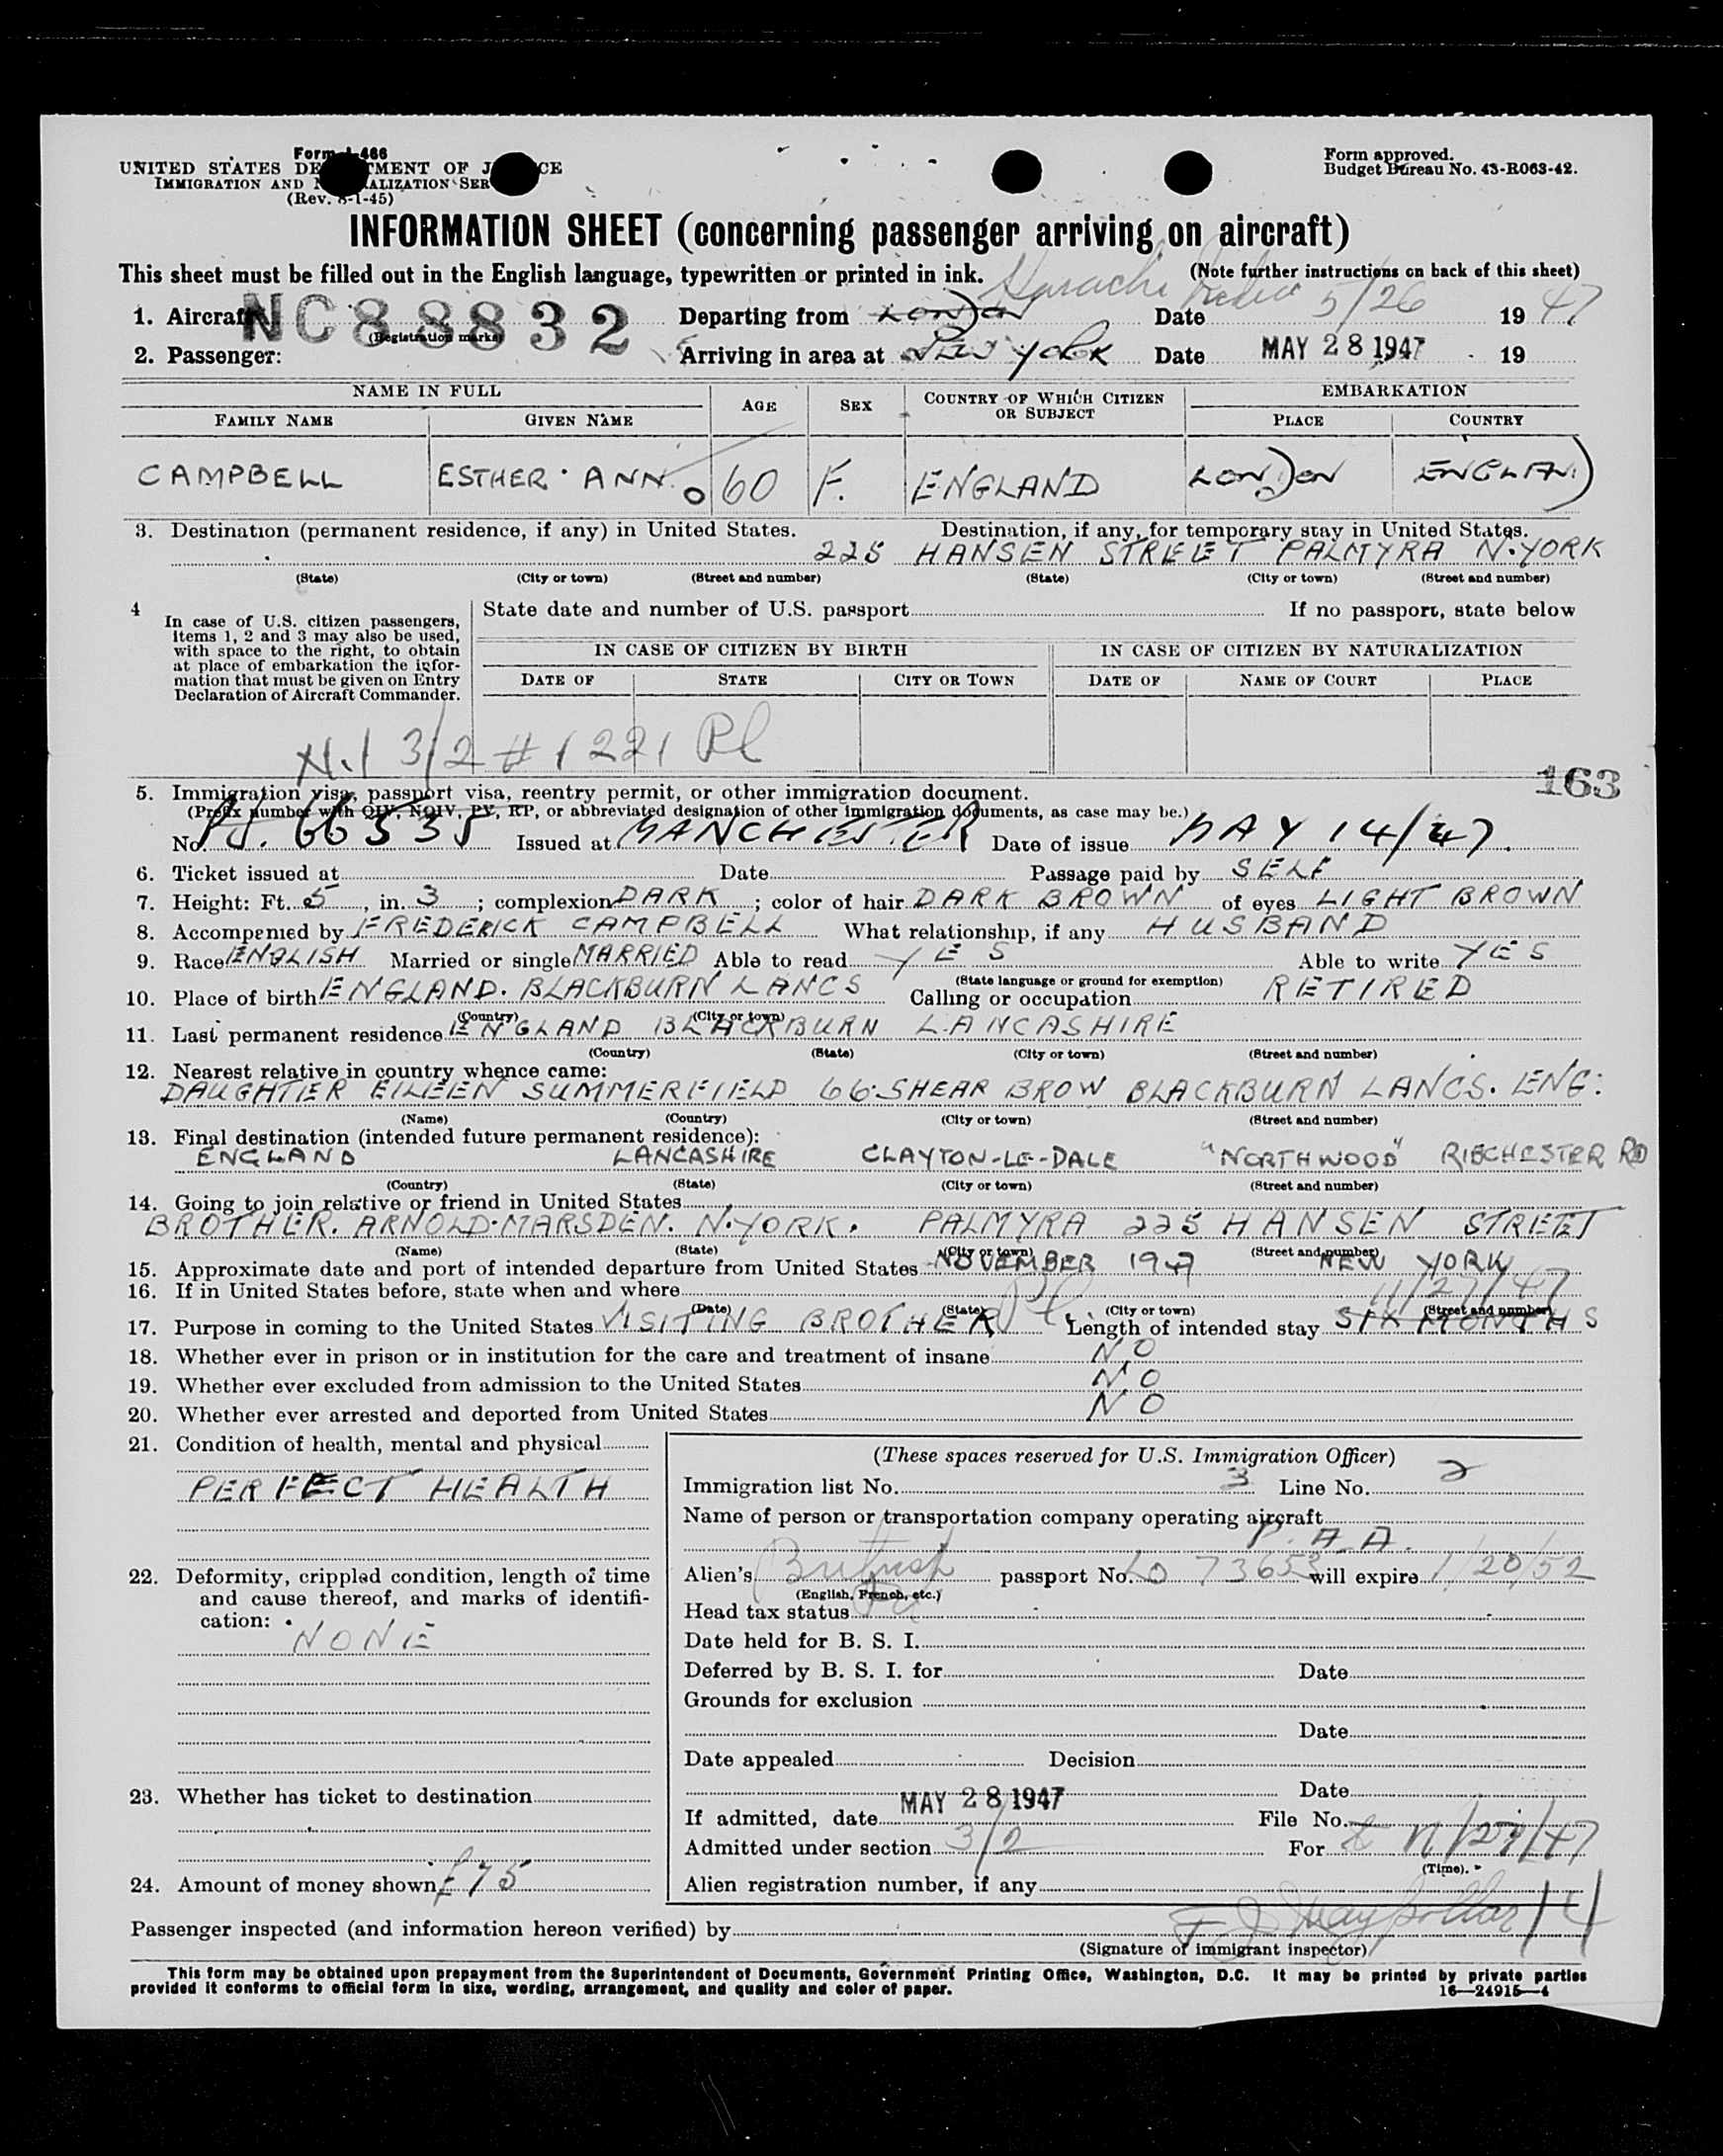 Form I-466
UNITED STATES DEPARTMENT OF JUSTICE
IMMIGRATION AND NATURALIZATION SERVICE
(Rev. 8-1-45)
Form approved.
Budget Bureau No. 43-R063-42.
INFORMATION SHEET (concerning passenger arriving on aircraft)
This sheet must be filled out in the English language, typewritten or printed in ink. (Note further instructions on back of this sheet)
Karachi India
1. Aircraft NC88832 Departing from LONDON Date 5/26 1947
(Registration marks)
2. Passenger: Arriving in area at NEW YORK Date MAY 28 1947 19
NAME IN FULL AGE SEX COUNTRY OF WHICH CITIZEN OR SUBJECT EMBARKATION
FAMILY NAME GIVEN NAME PLACE COUNTRY
CAMPBELL ESTHER ANN. 60 F. ENGLAND LONDON ENGLAND
3. Destination (permanent residence, if any) in United States. Destination, if any, for temporary stay in United States.
225 HANSEN STREET PALMYRA N.YORK
(State) (City or town) (Street and number) (State) (City or town) (Street and number)
4 In case of U.S. citizen passengers, items 1, 2 and 3 may also be used, with space to the right, to obtain at place of embarkation the information that must be given on Entry Declaration of Aircraft Commander.
State date and number of U.S. passport If no passport, state below
IN CASE OF CITIZEN BY BIRTH IN CASE OF CITIZEN BY NATURALIZATION
DATE OF STATE CITY OR TOWN DATE OF NAME OF COURT PLACE
3/2 # 1221 Pl
163
5. Immigration visa, passport visa, reentry permit, or other immigration document.
(Prefix number with QIV, NQIV, PV, RP, or abbreviated designation of other immigration documents, as case may be.)
No. 66535 Issued at MANCHESTER Date of issue MAY 14/47.
6. Ticket issued at Date Passage paid by SELF
7. Height: Ft. 5, in. 3; complexion DARK; color of hair DARK BROWN of eyes LIGHT BROWN
8. Accompanied by FREDERICK CAMPBELL What relationship, if any HUSBAND
9. Race ENGLISH Married or single MARRIED Able to read YES Able to write YES
(State language or ground for exemption)
10. Place of birth ENGLAND. BLACKBURN LANCS Calling or occupation RETIRED
(Country) (City or town)
11. Last permanent residence ENGLAND BLACKBURN LANCASHIRE
(Country) (State) (City or town) (Street and number)
12. Nearest relative in country whence came:
DAUGHTER EILEEN SUMMERFIELD 66 SHEAR BROW BLACKBURN LANCS. ENG:
(Name) (Country) (City or town) (Street and number)
13. Final destination (intended future permanent residence):
ENGLAND LANCASHIRE CLAYTON-LE-DALE "NORTHWOOD" RIBCHESTER RD
(Country) (State) (City or town) (Street and number)
14. Going to join relative or friend in United States
BROTHER. ARNOLD MARSDEN. N.YORK. PALMYRA 225 HANSEN STREET
(Name) (State) (City or town) (Street and number)
15. Approximate date and port of intended departure from United States NOVEMBER 1947 NEW YORK
16. If in United States before, state when and where 11/27/47
(Date) (State) (City or town) (Street and number)
17. Purpose in coming to the United States VISITING BROTHER Pl Length of intended stay SIX MONTHS
18. Whether ever in prison or in institution for the care and treatment of insane NO
19. Whether ever excluded from admission to the United States NO
20. Whether ever arrested and deported from United States NO
21. Condition of health, mental and physical
PERFECT HEALTH
22. Deformity, crippled condition, length of time and cause thereof, and marks of identification:
NONE
23. Whether has ticket to destination
24. Amount of money shown £75
(These spaces reserved for U.S. Immigration Officer)
Immigration list No. 3 Line No. 2
Name of person or transportation company operating aircraft
P.A.A.
Alien's British passport No. LO 73653 will expire 1/20/52
(English, French, etc.)
Head tax status
Date held for B. S. I.
Deferred by B. S. I. for Date
Grounds for exclusion
Date
Date appealed Decision
Date
If admitted, date MAY 28 1947 File No.
Admitted under section 3/2 For 11/27/47
(Time).
Alien registration number, if any
Passenger inspected (and information hereon verified) by
(Signature of immigrant inspector)
This form may be obtained upon prepayment from the Superintendent of Documents, Government Printing Office, Washington, D.C. It may be printed by private parties
provided it conforms to official form in size, wording, arrangement, and quality and color of paper. 16—24915—4